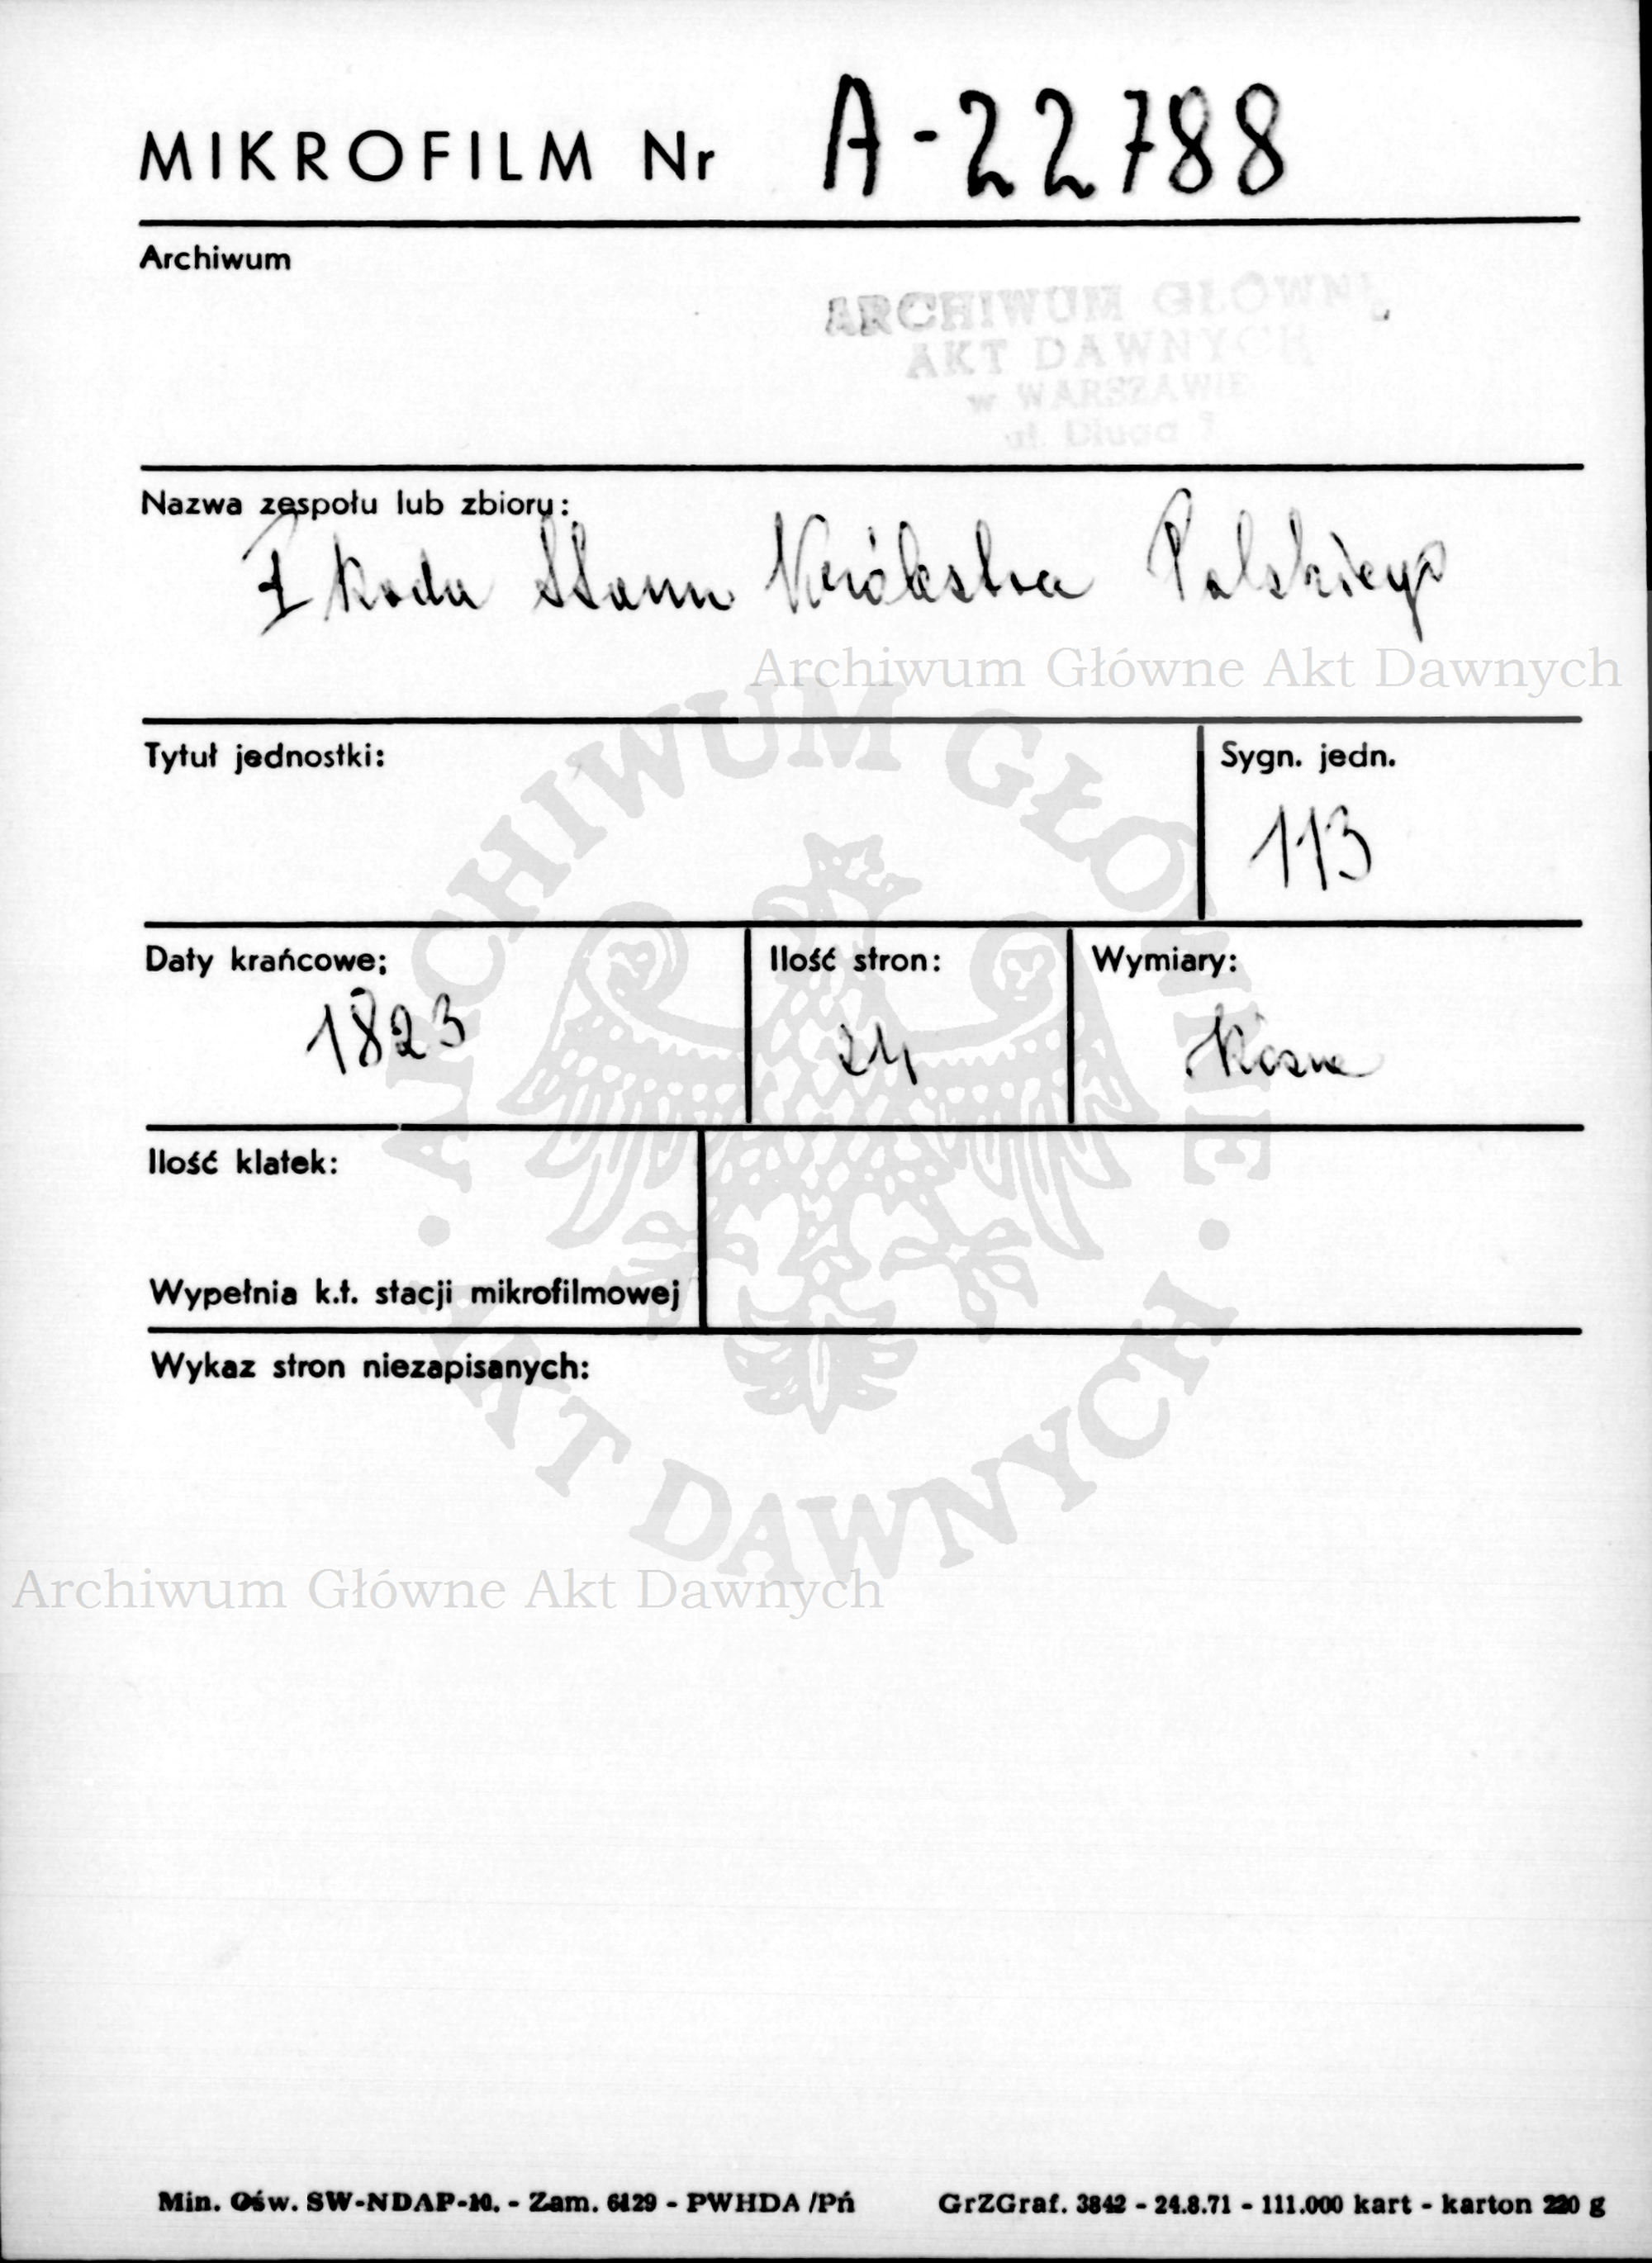 MIKROFILM Nr A-22788
Archiwum
ARCHIWUM GŁÓWNE
AKT DAWNYCH
w WARSZAWIE
ul. Długa 7
Nazwa zespołu lub zbioru:
I Rada Stanu Królestwa Polskiego
Archiwum Główne Akt Dawnych
Tytuł jednostki:
Sygn. jedn.
113
Daty krańcowe;
1823
Ilość stron:
24
Wymiary:
Ilość klatek:
Wypełnia k.t. stacji mikrofilmowej
Wykaz stron niezapisanych:
ARCHIWUM GŁÓWNE
AKT DAWNYCH
Archiwum Główne Akt Dawnych
Min. Ośw. SW-NDAP-10. - Zam. 6129 - PWHDA /Pń
GrZGraf. 3842 - 24.8.71 - 111.000 kart - karton 220 g